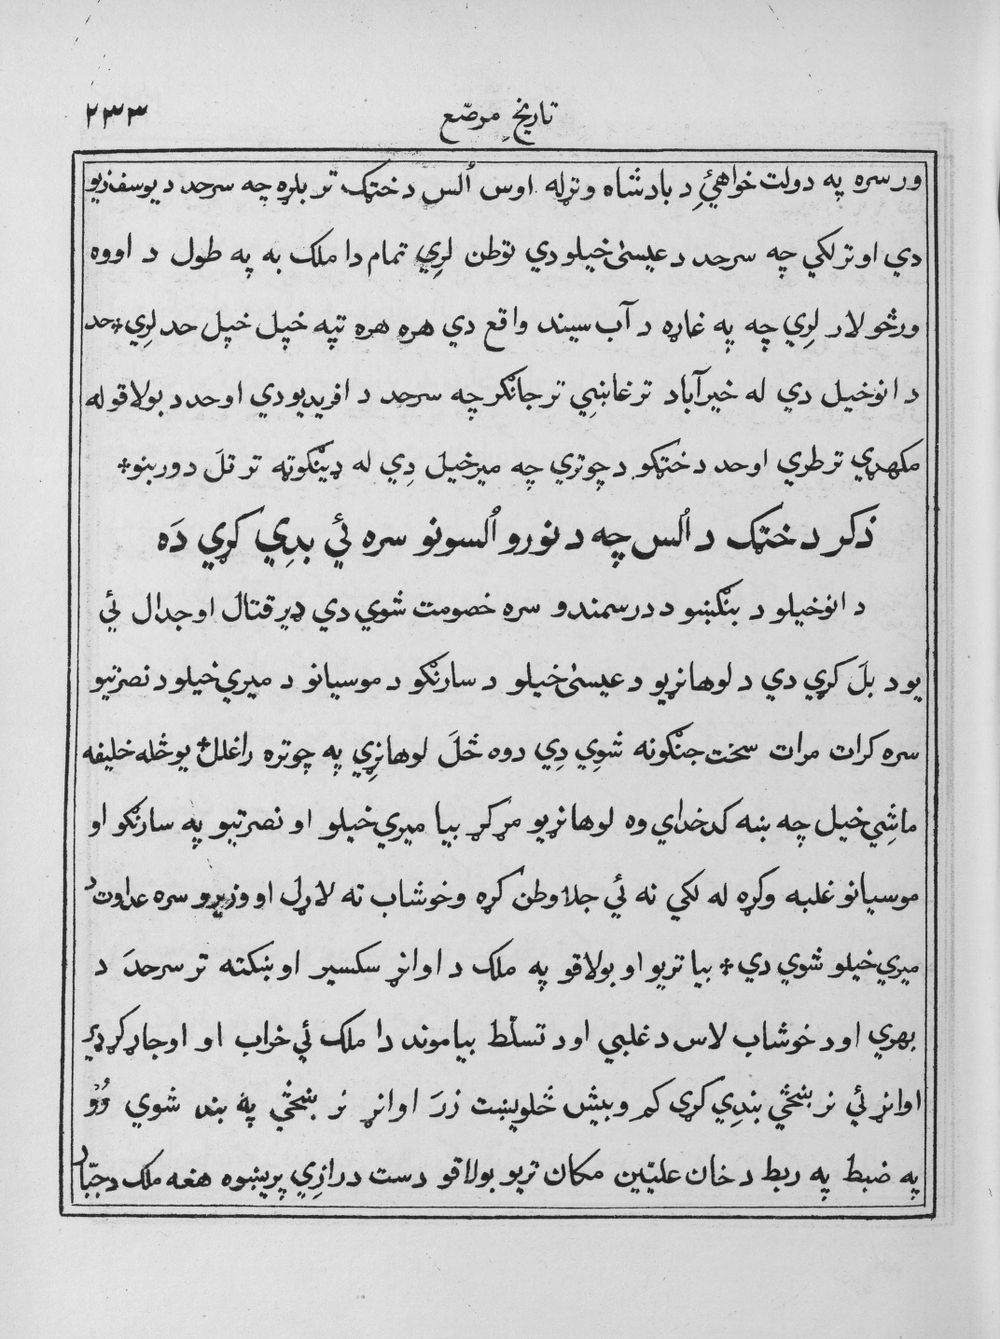 تاریخِ مرصّع ۲۳۳
ورسره په دولت خواهیٔ د بادشاه وتړله اوس اُلس د خټک تر بلړه چه سرحد د یوسفزیو
دي او تر لکي چه سرحد د عیسیٰ خیلو دي توطن لرِي تمام دا ملک به په طول د اووه
ورځو لار لرِي چه په غاړه د آب سیند واقع دي هره هره تپه خپل خپل حد لرِي * حد
د انوخیل دي له خیرآباد تر غاښي تر جانګر چه سرحد د افریدیو دي او حد د بولاقو له
مکهډي تر طري او حد د خټکو د چوتري چه میرخیل دِي له ډینګوټه تر تلَ د وربنو *
ذکر د خټک د اُلس چه د نورو اُلسونو سره ئي بدِي کړي دَه
د انوخیلو د بنګښو د درسمندو سره خصومت شوي دي ډیر قتال او جدال ئي
یو د بلَ کړي دي د لوهاڼیو د عیسیٰ خیلو د سارنګو د موسیانو د میري خیلو د نصرتیو
سره کرات مرات سخت جنګونه شوِي دِي دوه ځلَ لوهاڼِي په چوتره راغلل * یو ځله خلیفه
ماشِي خیل چه ښه کدخداي وه لوهاڼیو مړ کړ بیا میري خیلو او نصرتیو په سارنګو او
موسیانو غلبه وکړه له لکي نه ئي جلاوطن کړه وخوشاب ته لاړل او وزیرو سره عداوت د
میري خیلو شوي دي * بیا تریو او بولاقو په ملک د اواڼ سکسیر او ښکته تر سرحدَ د
بهري او د خوشاب لاس د غلبي او د تسلّط بیاموند دا ملک ئي خراب او اوجاړ کړ ډیر
اواڼ ئي نر ښځي بندِي کړی کم و بیش څلویښت زرَ اواڼ نر ښځي په بند شوي وُوْ
په ضبط په ربط د خان علیّین مکان تریو بولاقو دست درازِي پریښوه هغه ملک د جبّار